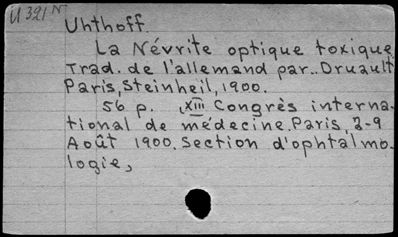 U 321 N
Uhthoff.
La Névrite optique toxique
Trad. de l'allemand par..Druault
Paris, Steinheil, 1900.
56 p. (XIII Congrès interna-
tional de médecine. Paris, 2-9
Août 1900. Section d'ophtalmo-
logie,